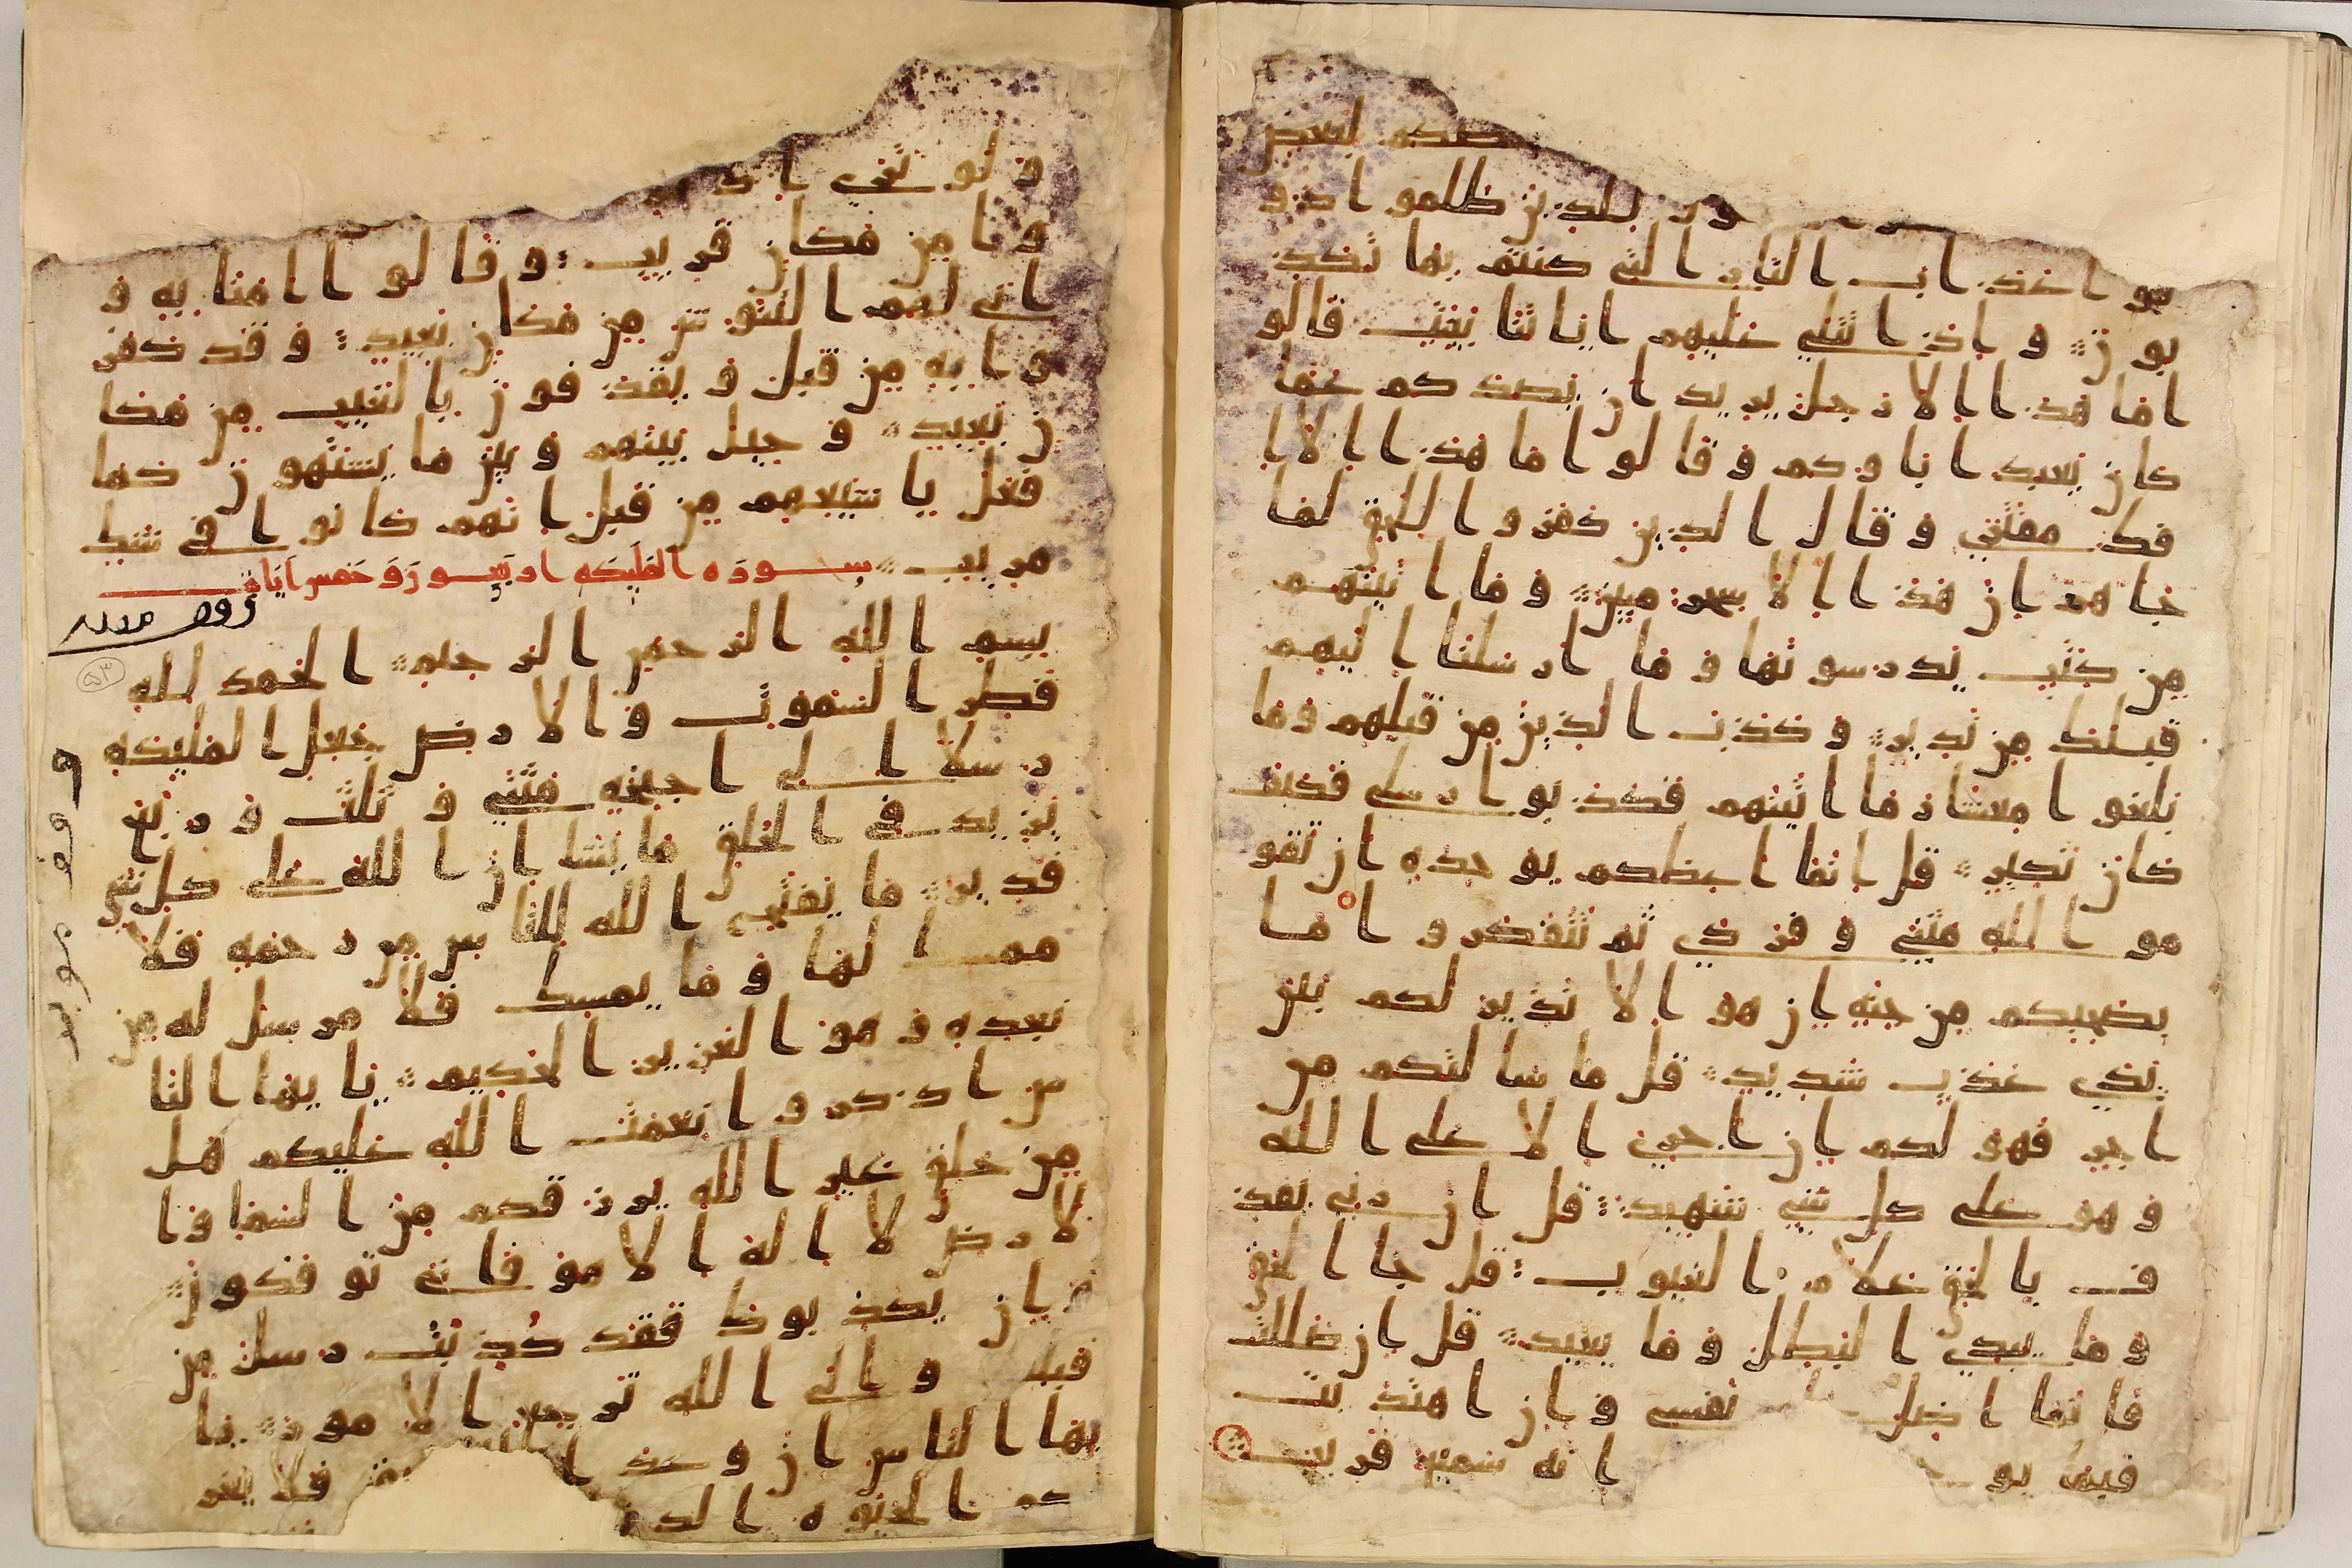 ضكم لبعض
للذين ظلموا ذو
قوا عذاب النار التي كنتم بها تكذ
بون و اذا تتلى عليهم اياتنا بينت قالو
ا ما هذا الا رجل يريد ان يصدكم عما
كان يعبد اباوكم و قالوا ما هذا الا ا
فك مفترى و قال الذين كفروا للحق لما
جاهم ان هذا الا سحر مبين و ما اتينهم
من كتب يدرسونها و ما ارسلنا اليهم
قبلك من نذير و كذب الذين من قبلهم وما
بلغوا معشار ما اتينهم فكذبوا رسلي فكيف
كان نكير قل انما اعظكم بوحده ان تقو
موا لله مثنى و فردى ثم تتفكروا ما
بصحبكم من جنه ان هو الا نذير لكم بين
يدي عذب شديد قل ما سالتكم من
اجر فهو لكم ان اجري الا على الله
و هو على كل شي شهيد قل ان ربي يقذ
ف بالحق علام الغيوب قل جا الحق
و ما يبدي البطل و ما يعيد قل ان ضللت
فانما اضل نفسي و ان اهتديت
فبما يو انه سميع قريب
و لو ترى اذ
وا من مكان قريب و قالوا امنا به و
انى لهم التنوش من مكان بعيد و قد كفر
وا به من قبل و يقذفون بالغيب من مكا
ن بعيد و حيل بينهم و بين ما يشتهون كما
فعل باشيعهم من قبل انهم كانوا في شك
مريب سوره المليكه اربعون و خمس ايات
٥٣
بسم الله الرحمن الرحيم الحمد لله
فطر السموت و الارض جعل المليكه
رسلا اولي اجنحه مثنى و ثلث و ربع
يزيد في الخلق ما يشا ان الله على كل شي
قدير ما يفتح الله للناس من رحمه فلا
ممسك لها و ما يمسك فلا مرسل له من
بعده و هو العزيز الحكيم يايها النا
س اذكروا نعمت الله عليكم هل
من خلق غير الله يرزقكم من السما وا
لارض لا اله الا هو فانى توفكون
و ان يكذبوك فقد كذبت رسل من
قبلك و الى الله ترجع الامور يا
يها الناس ان وعد الله فلا تغر
كم الحيوه الد